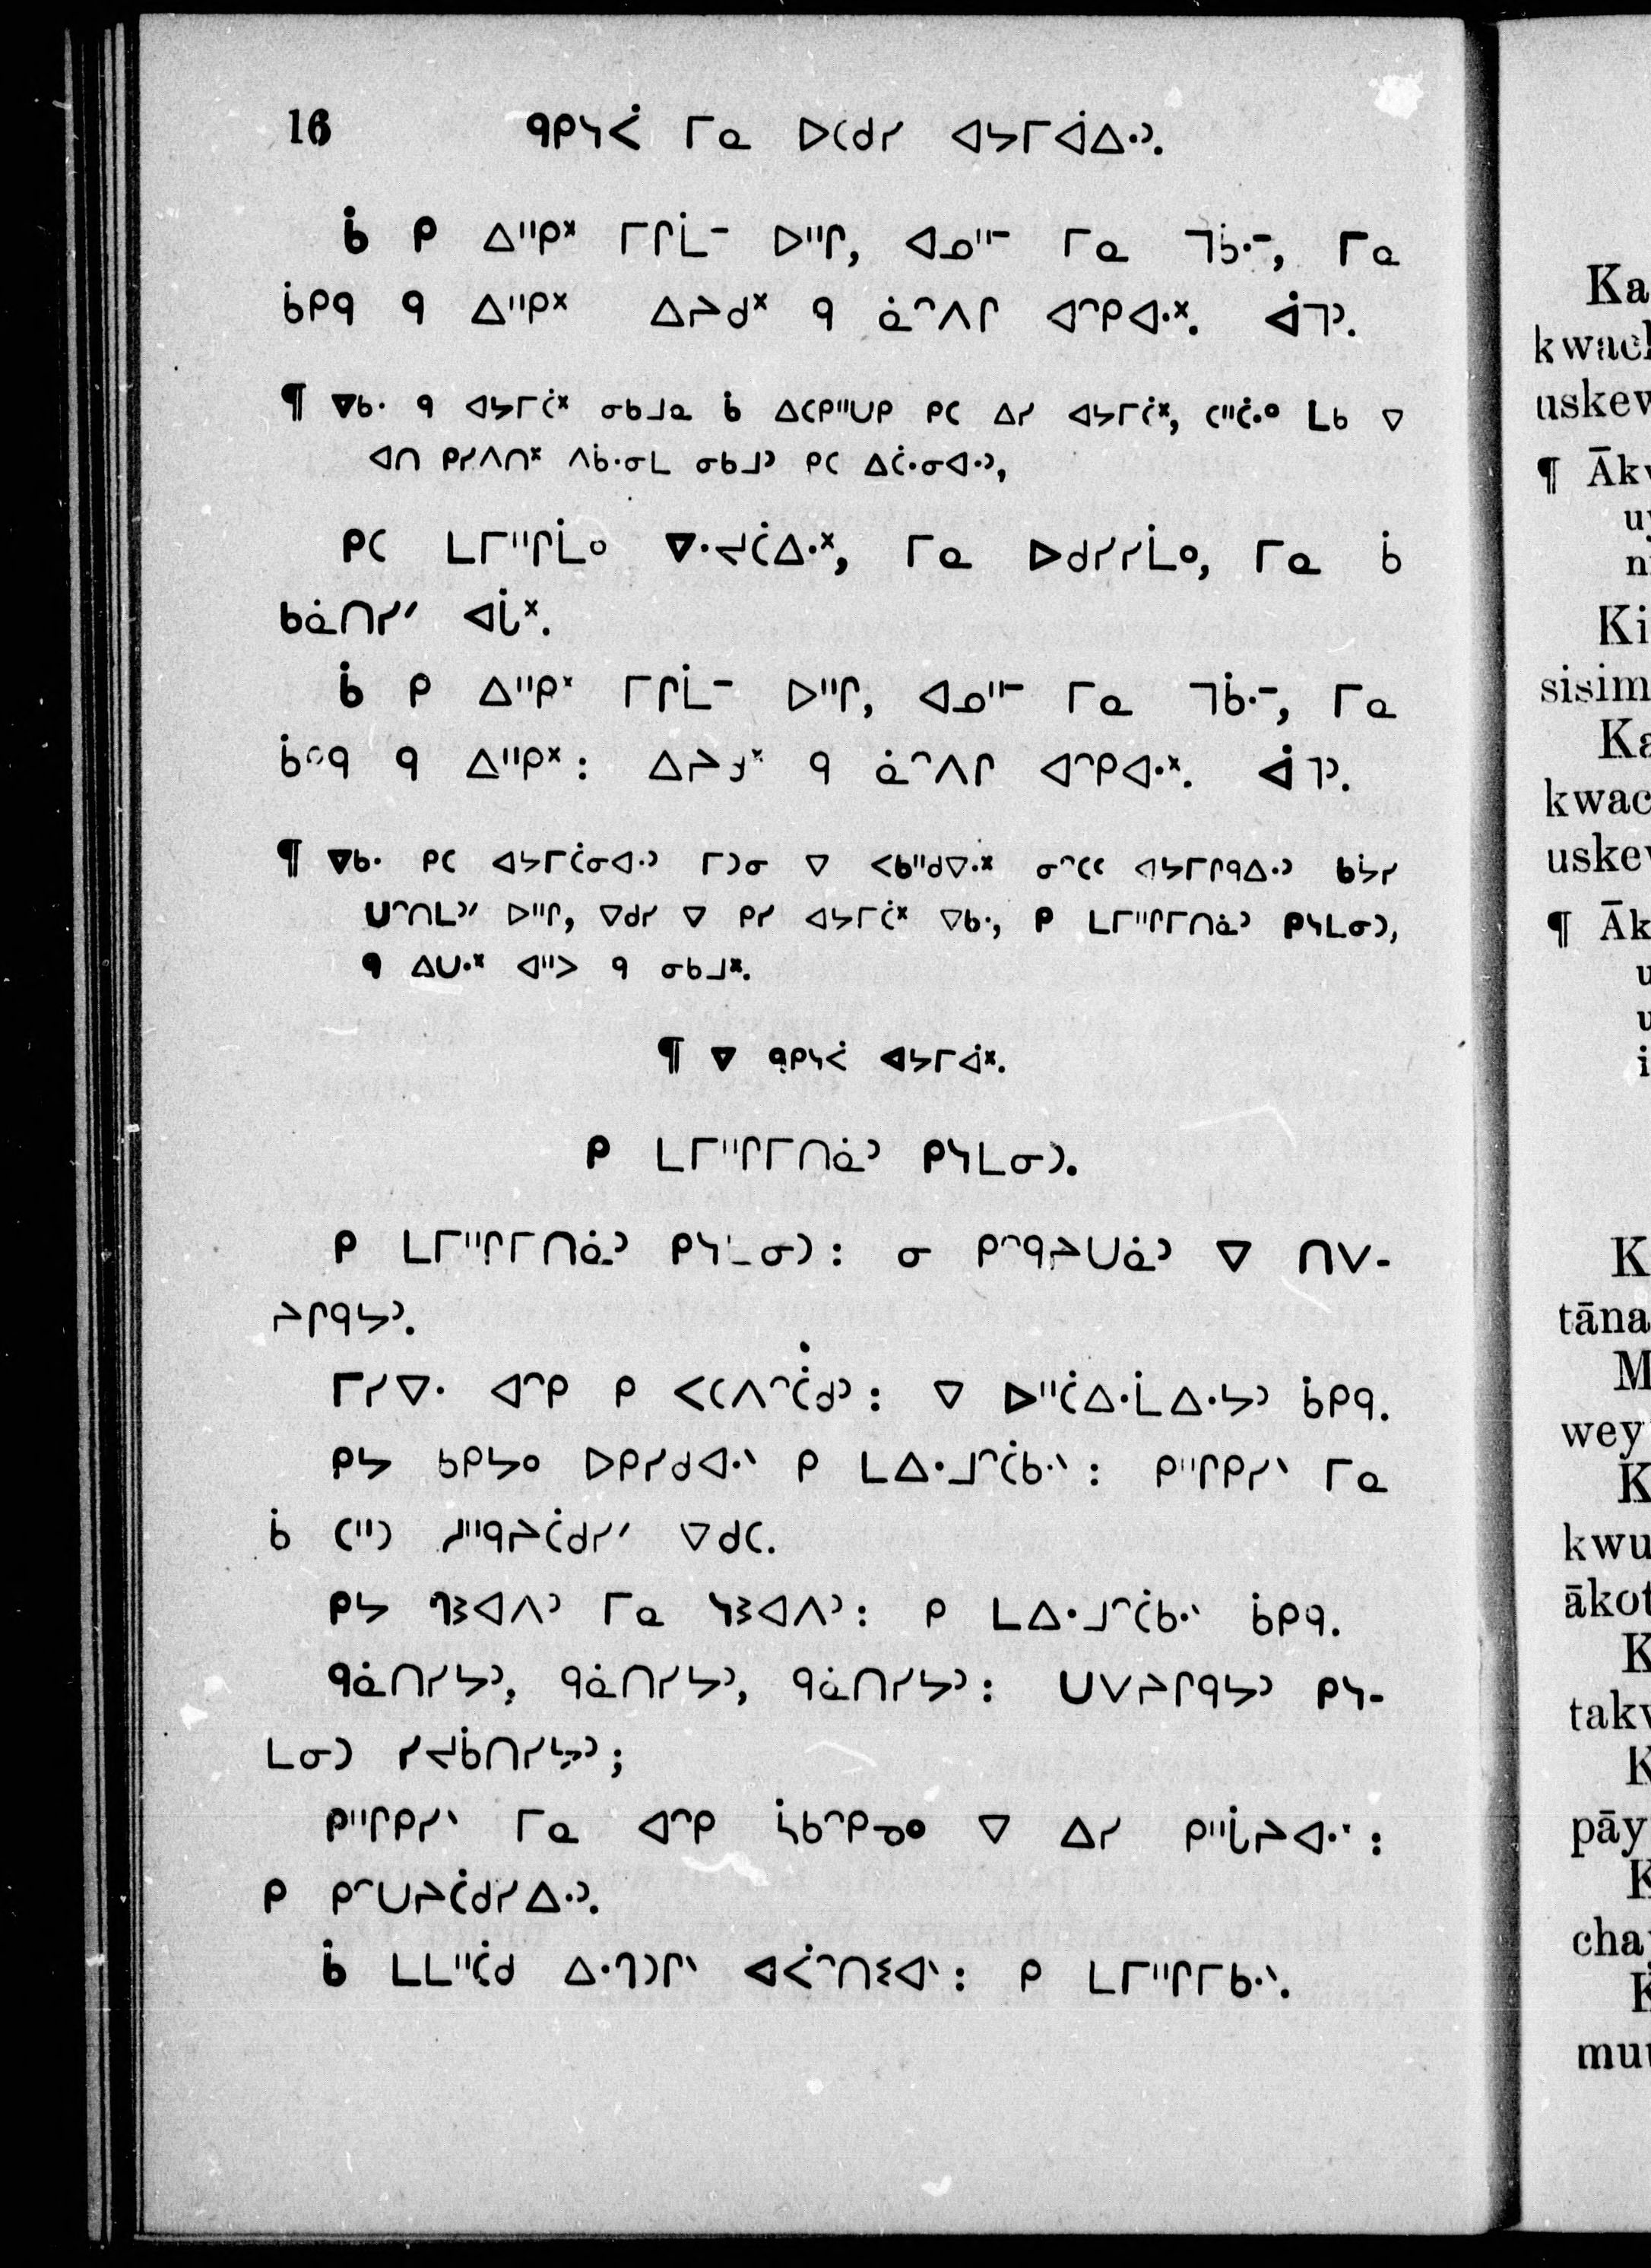 16 ᑫᑭᓴᐹ ᒥᓇ ᐅᑕᑯᓯ ᐊᔭᒥᐋᐃᐧᐣ.
ᑳ ᑭ ᐃᐦᑭᕽ ᒥᒋᒫᐨ ᐅᐦᒋ, ᐊᓄᐦᐨ ᒥᓇ ᒣᑳᐧᐨ, ᒥᓇ
ᑳᑭᑫ ᑫ ᐃᐦᑭᕽ ᐃᔨᑯᕽ ᑫ ᓈᐢᐱᒋ ᐊᐢᑭᐊᐧᕽ. ᐋᒣᐣ.
¶ ᐁᑲᐧ ᑫ ᐊᔭᒥᑖᕽ ᓂᑲᒧᓇ ᑳ ᐃᑕᑭᐦᑌᑭ ᑭᑕ ᐃᓯ ᐊᔭᒥᑖᕽ, ᑕᐦᑖᐧᐤ ᒪᑲ ᐁ
ᐊᑎ ᑭᓯᐱᑎᕽ ᐱᑳᐧᓂᒪ ᓂᑲᒧᐣ ᑭᑕ ᐃᑖᐧᓂᐊᐧᐣ,
ᑭᑕ ᒪᒥᐦᒋᒫᐤ ᐁᐧᔪᑖᐃᐧᕽ, ᒥᓇ ᐅᑯᓯᓯᒫᐤ, ᒥᓇ ᑳ
ᑲᓈᑎᓯᐟ ᐊᒑᕽ.
ᑳ ᑭ ᐃᐦᑭᕽ ᒥᒋᒫᐨ ᐅᐦᒋ, ᐊᓄᐦᐨ ᒥᓇ ᒣᑳᐧᐨ, ᒥᓇ
ᑳᑭᑫ ᑫ ᐃᐦᑭᕽ: ᐃᔨᑯᕽ ᑫ ᓈᐢᐱᒋ ᐊᐢᑭᐊᐧᕽ. ᐋᒣᐣ.
¶ ᐁᑲᐧ ᑭᑕ ᐊᔭᒥᑖᓂᐊᐧᐣ ᒥᑐᓂ ᐁ ᐸᑲᐦᑯᐁᐧᕽ ᓂᐢᑕᑕ ᐊᔭᒥᒋᑫᐃᐧᐣ ᑲᔮᓯ
ᑌᐢᑎᒪᐣᐟ ᐅᐦᒋ, ᐁᑯᓯ ᐁ ᑭᓯ ᐊᔭᒥᑖᕽ ᐁᑲᐧ, ᑭ ᒪᒥᐦᒋᒥᑎᓈᐣ ᑭᓴᒪᓂᑐ,
ᑫ ᐃᑌᐧᕽ ᐊᐦᐳ ᑫ ᓂᑲᒧᕽ.
¶ ᐁ ᑫᑭᓴᐹ ᐊᔭᒥᐋᕽ.
ᑭ ᒪᒥᐦᒋᒥᑎᓈᐣ ᑭᓴᒪᓂᑐ.
ᑭ ᒪᒥᐦᒋᒥᑎᓈᐣ ᑭᓴᒪᓂᑐ: ᓂ ᑭᐢᑫᔨᑌᓈᐣ ᐁ ᑎᐯ-
ᔨᒋᑫᔭᐣ.
ᒥᓯᐁᐧ ᐊᐢᑭ ᑭ ᐸᑕᐱᐢᑖᑯᐣ: ᐁ ᐅᐦᑖᐃᐧᒫᐃᐧᔭᐣ ᑳᑭᑫ.
ᑭᔭ ᑲᑭᔭᐤ ᐅᑭᓯᑯᐊᐧᐠ ᑭ ᒪᐃᐧᒧᐢᑖᑲᐧᐠ: ᑭᐦᒋᑭᓯᐠ ᒥᓇ
ᑳ ᑕᐦᑐ ᓱᐦᑫᔨᑖᑯᓯᐟ ᐁᑯᑕ.
ᑭᔭ ᒉᕒᐊᐱᐣ ᒥᓇ ᓭᕒᐊᐱᐣ: ᑭ ᒪᐃᐧᒧᐢᑖᑲᐧᐠ ᑳᑭᑫ.
ᑫᓈᑎᓯᔭᐣ, ᑫᓈᑎᓯᔭᐣ, ᑫᓈᑎᓯᔭᐣ: ᑌᐯᔨᒋᑫᔭᐣ ᑭᓴ-
ᒪᓂᑐ ᓯᔪᑳᑎᓯᔭᐣ;
ᑭᐦᒋᑭᓯᐠ ᒥᓇ ᐊᐢᑭ ᓵᑲᐢᑭᓀᐤ ᐁ ᐃᓯ ᑭᐦᒑᔨᐊᐧᐠ:
ᑭ ᑭᐢᑌᔨᑖᑯᓯᐃᐧᐣ.
ᑳ ᒪᒪᐦᑖᑯ ᐃᐧᒉᑐᒋᐠ ᐊᐹᐢᑎᕒᐊᐠ: ᑭ ᒪᒥᐦᒋᒥᑲᐧᐠ.